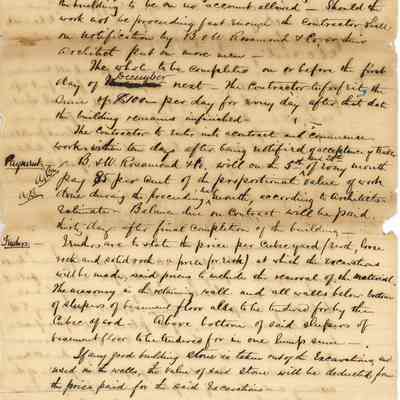 the building to be on no account allowed — Should the
work not be proceeding fast enough the Contractor shall
on notification by B & W Rosamond & Co, or their
Architect put on more men —
The whole to be completed on or before the first
day of December next — The Contractor to forfeit the
sum of $100 per day for every day after that date
the building remains unfinished —
The Contractor to enter into contract and commence
work within ten days after being notified of acceptance of Tender
Payments — B & W Rosamond & Co. will on the 5th of every month
pay 85 per cent of the proportionate value of work
done during the preceeding month, according to Architects
estimates Balance due on Contract will be paid
thirty days after final completion of the building —
Tenders — Tenders are to state the price per Cubic yard (
rock and solid rock a price for each) at which the excavations
will be made, said prices to include the removal of the material.
The masonry in the retaining wall and all walls below bottom
of sleepers of basement floor also to be tendered for by the
Cubic yard — Above bottom of said sleepers of
basement floor to be tendered for in one lump sum —
If any good building stone is taken out of the Excavations, and
used in the walls, the value of said stone will be deducted from
the price paid for the said Excavations —